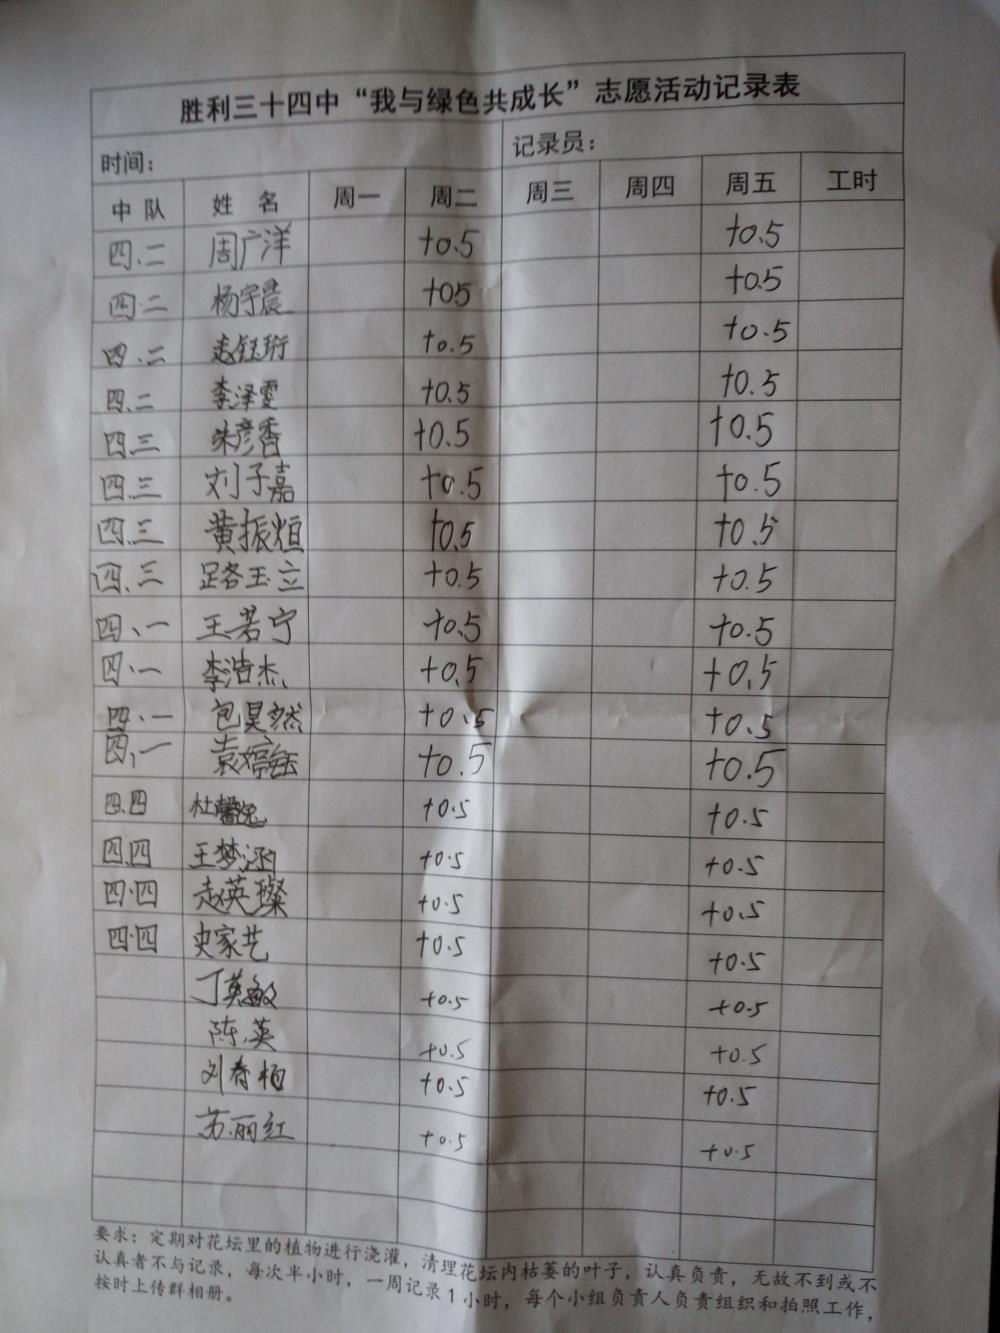 胜利三十四中“我与绿色共成长”志愿活动记录表
时间： 记录员：
中队 姓名 周一 周二 周三 周四 周五 工时
四、二 周广洋 +0.5 +0.5
四·二 杨宇晨 +05 +0.5
四、二 钰珩 +0.5 +0.5
四、二 李泽雯 +0.5 +0.5
四、三 朱彦香 +0.5 +0.5
四、三 刘子嘉 +0.5 +0.5
四、三 黄振烜 +0.5 +0.5
四、三 路玉立 +0.5 +0.5
四、一 王若宁 +0.5 +0.5
四、一 李浩杰 +0.5 +0.5
四、一 包昊然 +0.5 +0.5
四、一 袁婷钰 +0.5 +0.5
四、四 杜馨 +0.5 +0.5
四、四 王梦涵 +0.5 +0.5
四·四 赵英璨 +0.5 +0.5
四·四 史家艺 +0.5 +0.5
丁英敏 +0.5 +0.5
陈英 +0.5 +0.5
刘春柏 +0.5 +0.5
苏丽红 +0.5 +0.5
要求：定期对花坛里的植物进行浇灌，清理花坛内枯萎的叶子，认真负责，无故不到或不
认真者不与记录，每次半小时，一周记录1小时，每个小组负责人负责组织和拍照工作，
按时上传群相册。